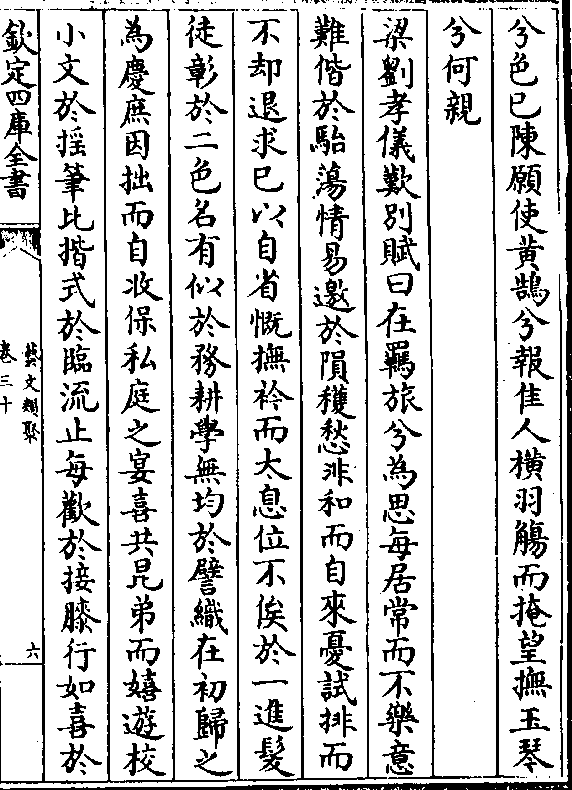 兮色已陳願使黄鵠兮報佳人横羽觴而掩望撫玉琴
兮何親
梁劉孝儀歎别賦曰在羇旅兮為思每居常而不樂意
難偕於駘蕩情易邀於隕穫愁非和而自來憂試排而
不却退求已以自省慨撫衿而太息位不俟於一進髮
徒彰於二色名有似於務耕學無均於譬織在初歸之
為慶庶因拙而自收保私庭之宴喜共昆弟而嬉遊校
小文於揺筆比揩式於臨流止每歡於接膝行如喜於
欽定四庫全書
藝文類聚
卷三十
六